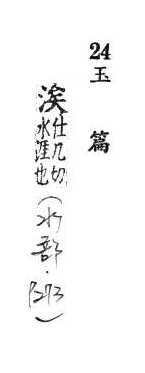 24玉篇
涘仕几切水涯也(水部·